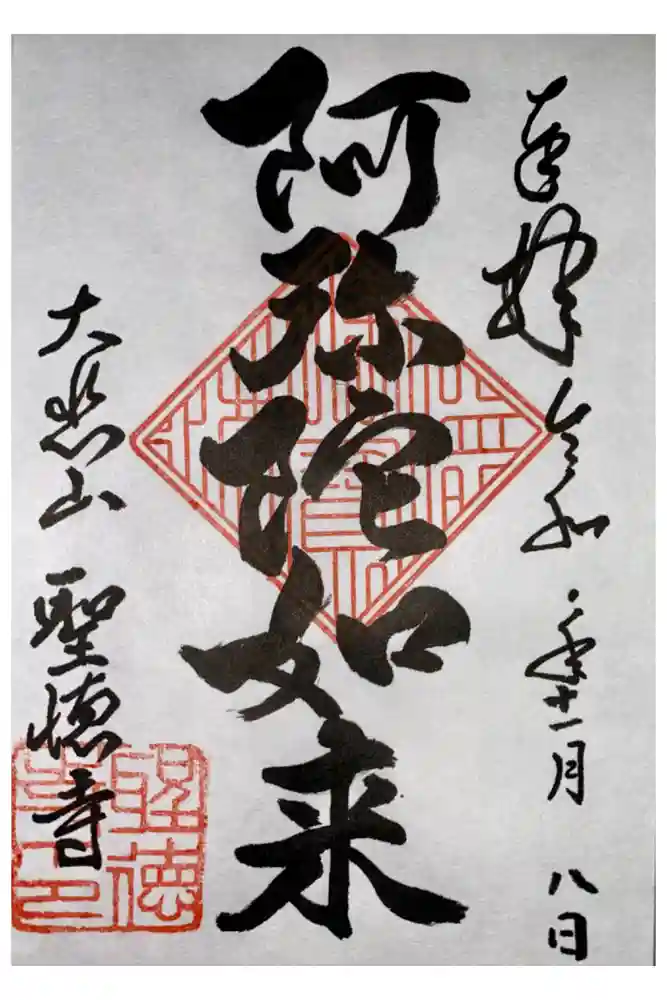 奉拝 令和二年十一月 八日
阿弥陀如来
大悲山 聖徳寺
聖徳寺印